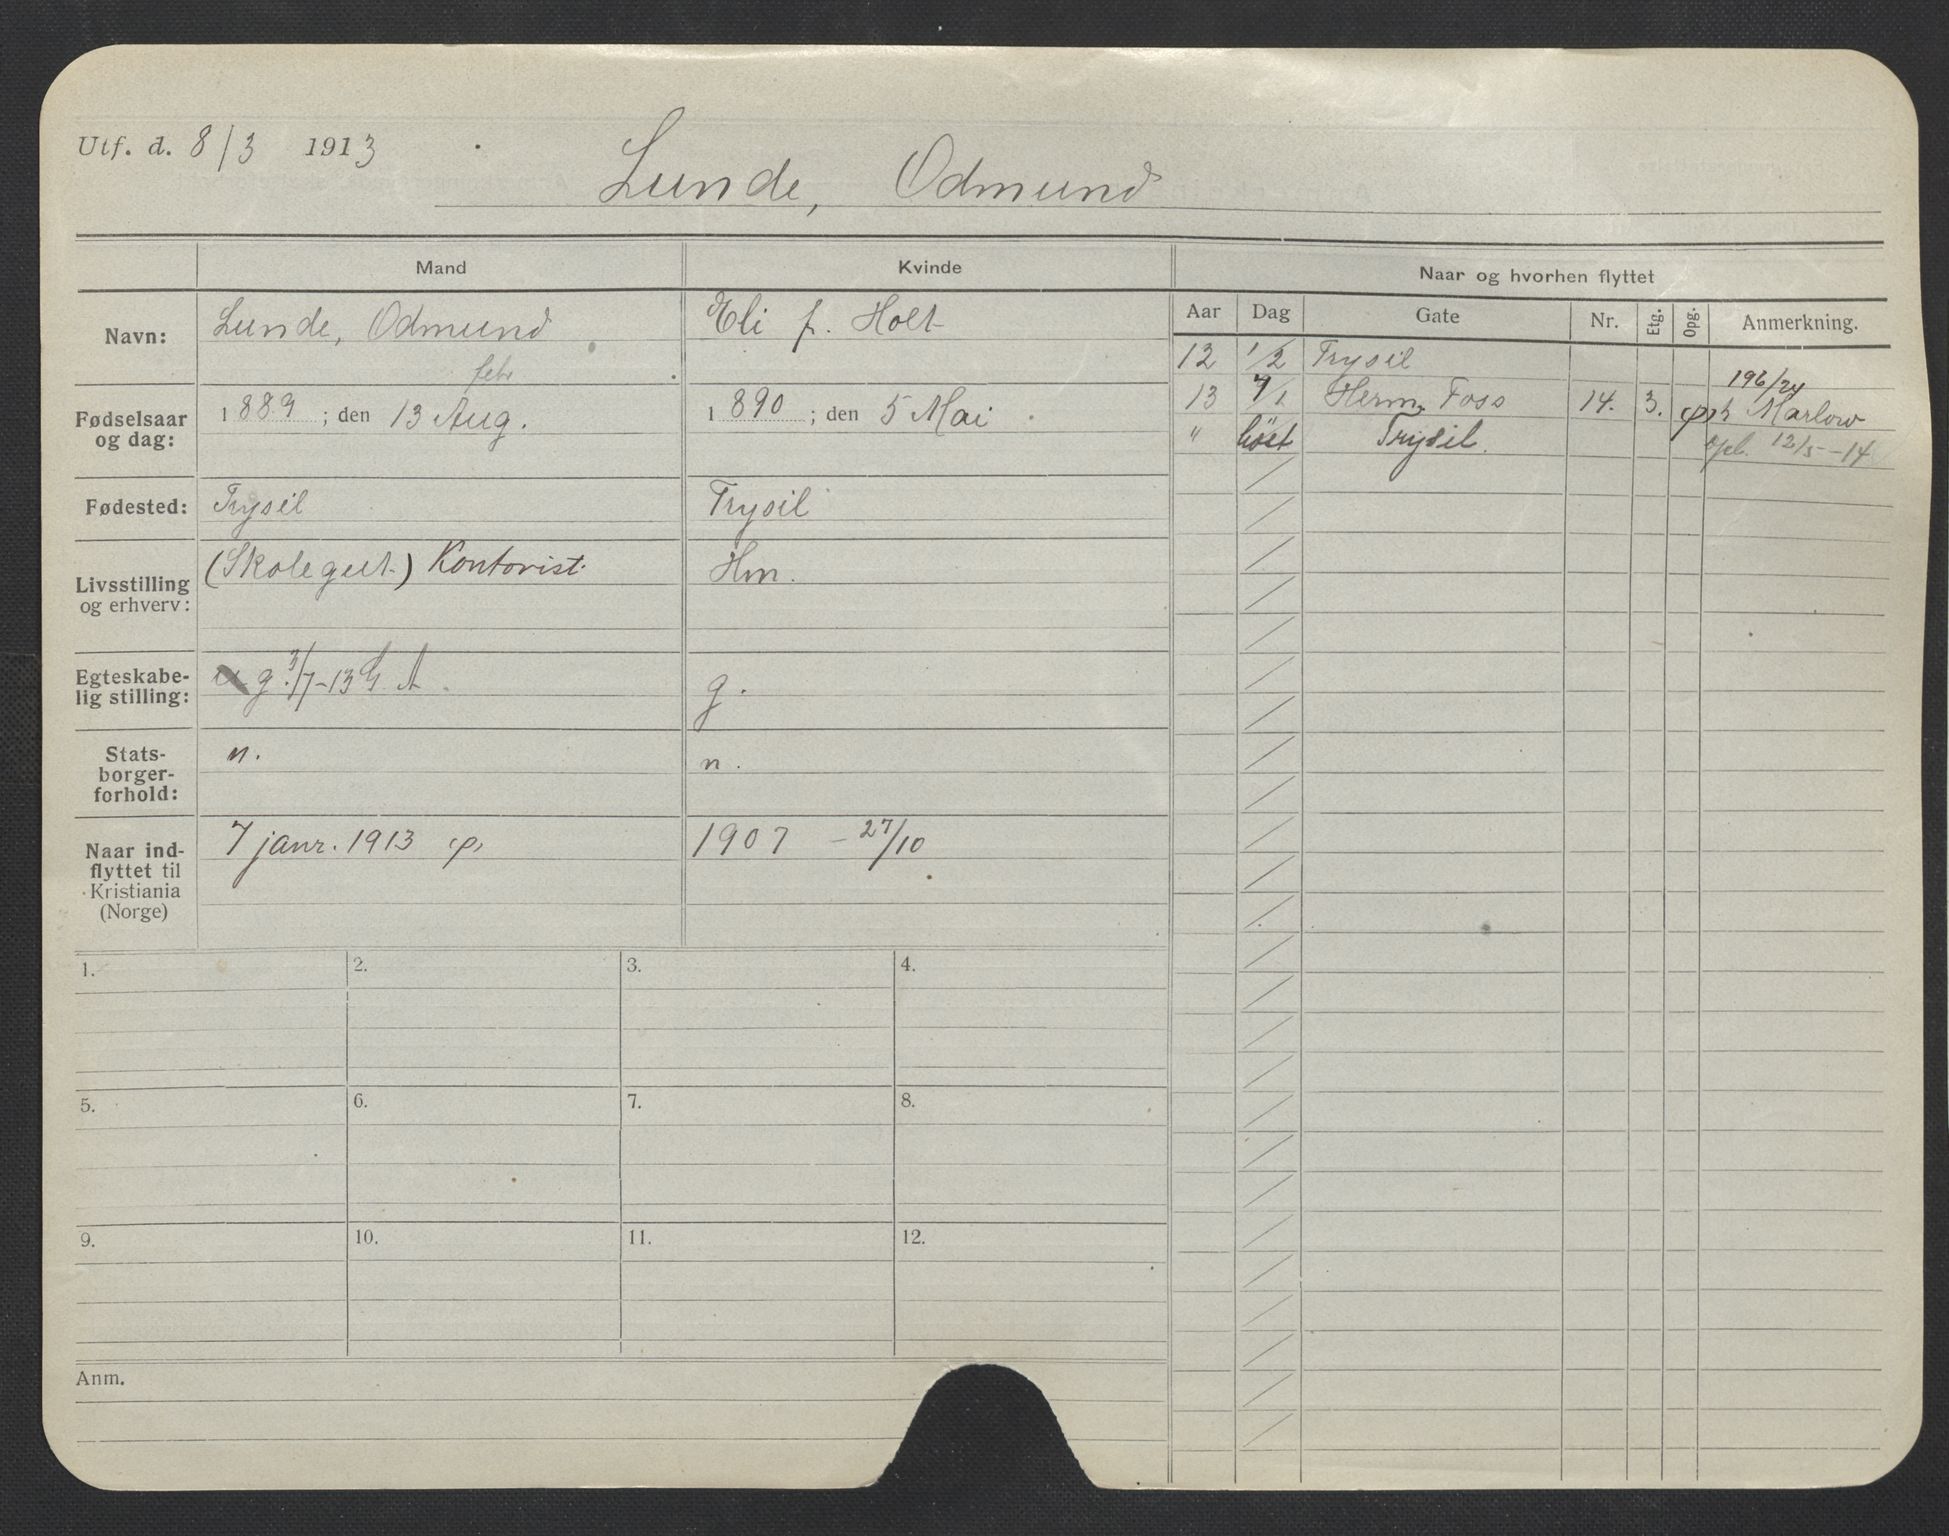 Utf. d. 8/3 1913
Lunde, Odmund
Mand
Kvinde
Navn: Lunde, Odmund
Eli f. Holt
febr
Fødselsaar og dag: 1889 ; den 13 Aug.
1890 ; den 5 Mai
Fødested: Trysil
Trysil
Livsstilling og erhverv: (Skolegut.) Kontorist.
Hm.
Egteskabelig stilling: g. 3/7-13 G. A.
g.
Statsborgerforhold: n.
n.
Naar indflyttet til Kristiania (Norge) 7 janr. 1913
1907 - 27/10
1.
2.
3.
4.
5.
6.
7.
8.
9.
10.
11.
12.
Anm.
Naar og hvorhen flyttet
Aar Dag Gate Nr. Etg. Opg. Anmerkning.
12 1/2 Trysil
196/24
13 7/1 Herm. Foss 14. 3. Marlow
" höst Trysil. opl. 12/5-14